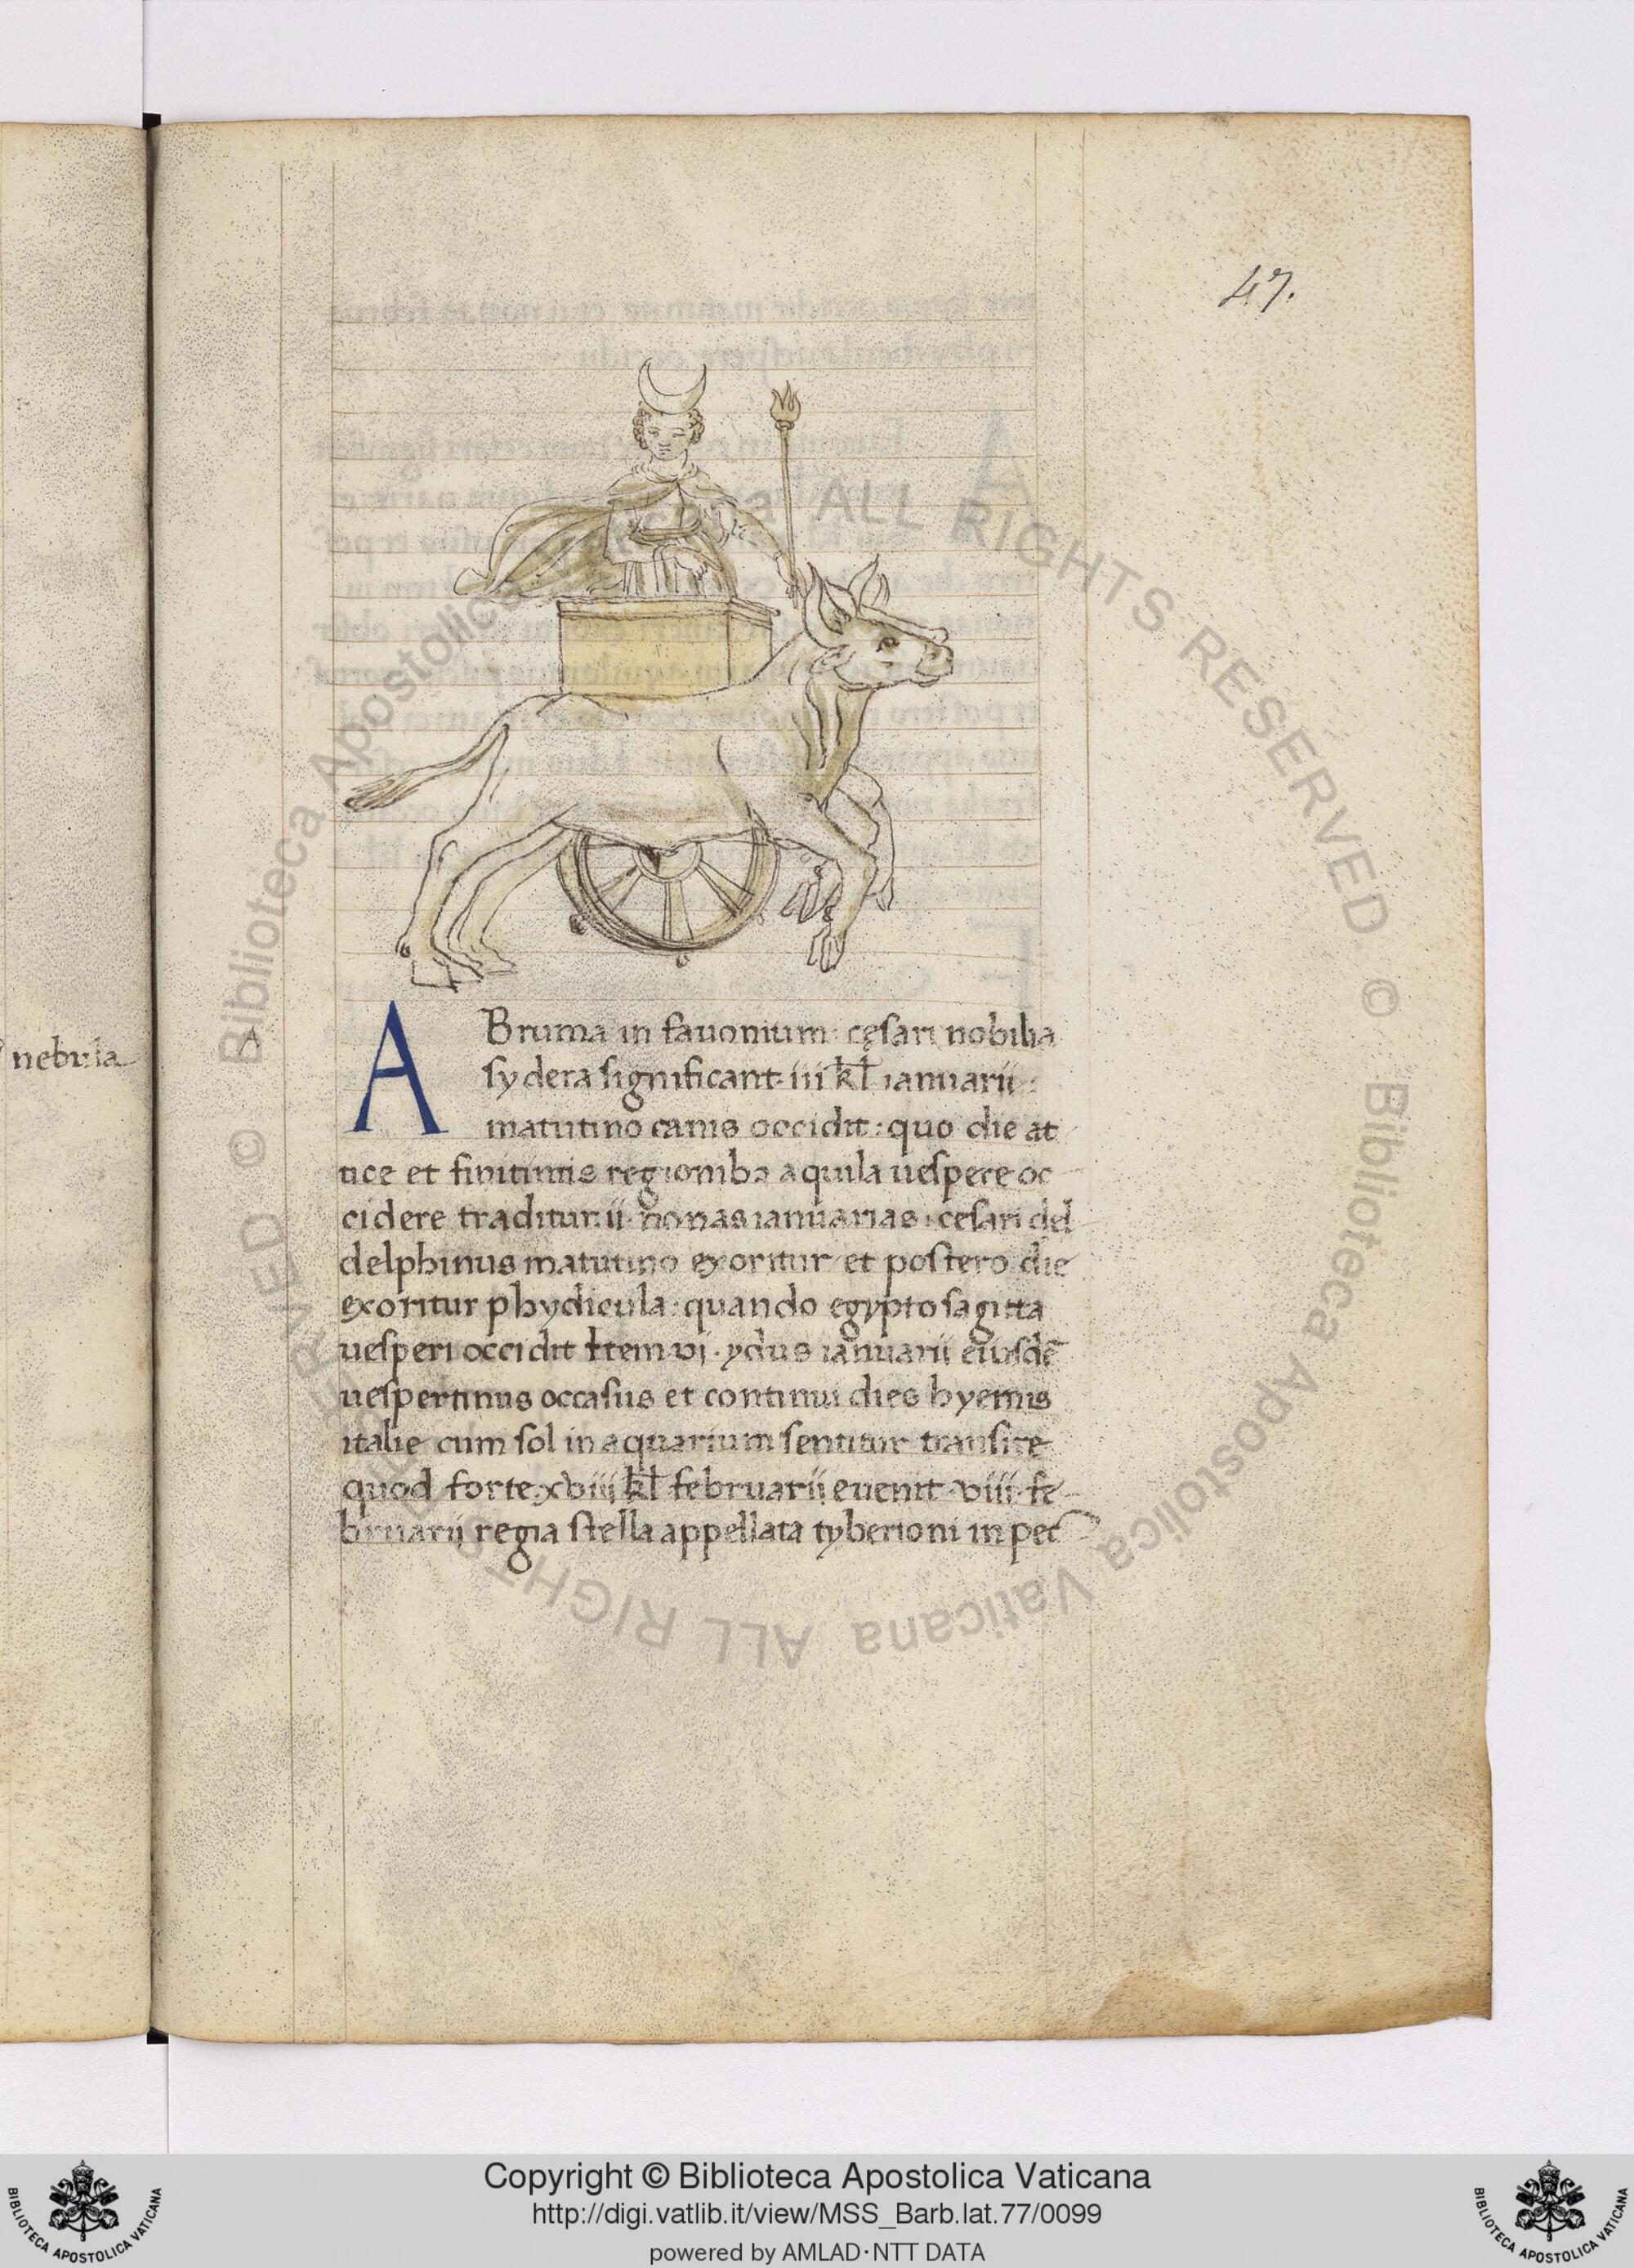 47.
nebula
A Bruma in fauonium: cęsari nobilia
sydera significant: iii kl̄ ianuarii:
matutino canis occidit: quo die at
tice et finitimis regionibꝫ aquila uespere oc
cidere traditur: ii nonas ianuarias: cesari del
delphinus matutino exoritur et postero die
exoritur phydicula: quando egypto sagitta
uesperi occidit Item vi. ydus ianuarii eiusdē
uespertinus occasus et continui dies hyemis
italie cum sol in aquarium sentitur transire
quod forte xviii kl̄ februarii euenit viii fe
bruarii regia stella appellata tyberioni in pec
© Biblioteca Apostolica Vaticana ALL RIGHTS RESERVED © Biblioteca Apostolica Vaticana ALL RIGHTS RESERVED
Copyright © Biblioteca Apostolica Vaticana
http://digi.vatlib.it/view/MSS_Barb.lat.77/0099
powered by AMLAD·NTT DATA
BIBLIOTECA APOSTOLICA VATICANA
BIBLIOTECA APOSTOLICA VATICANA